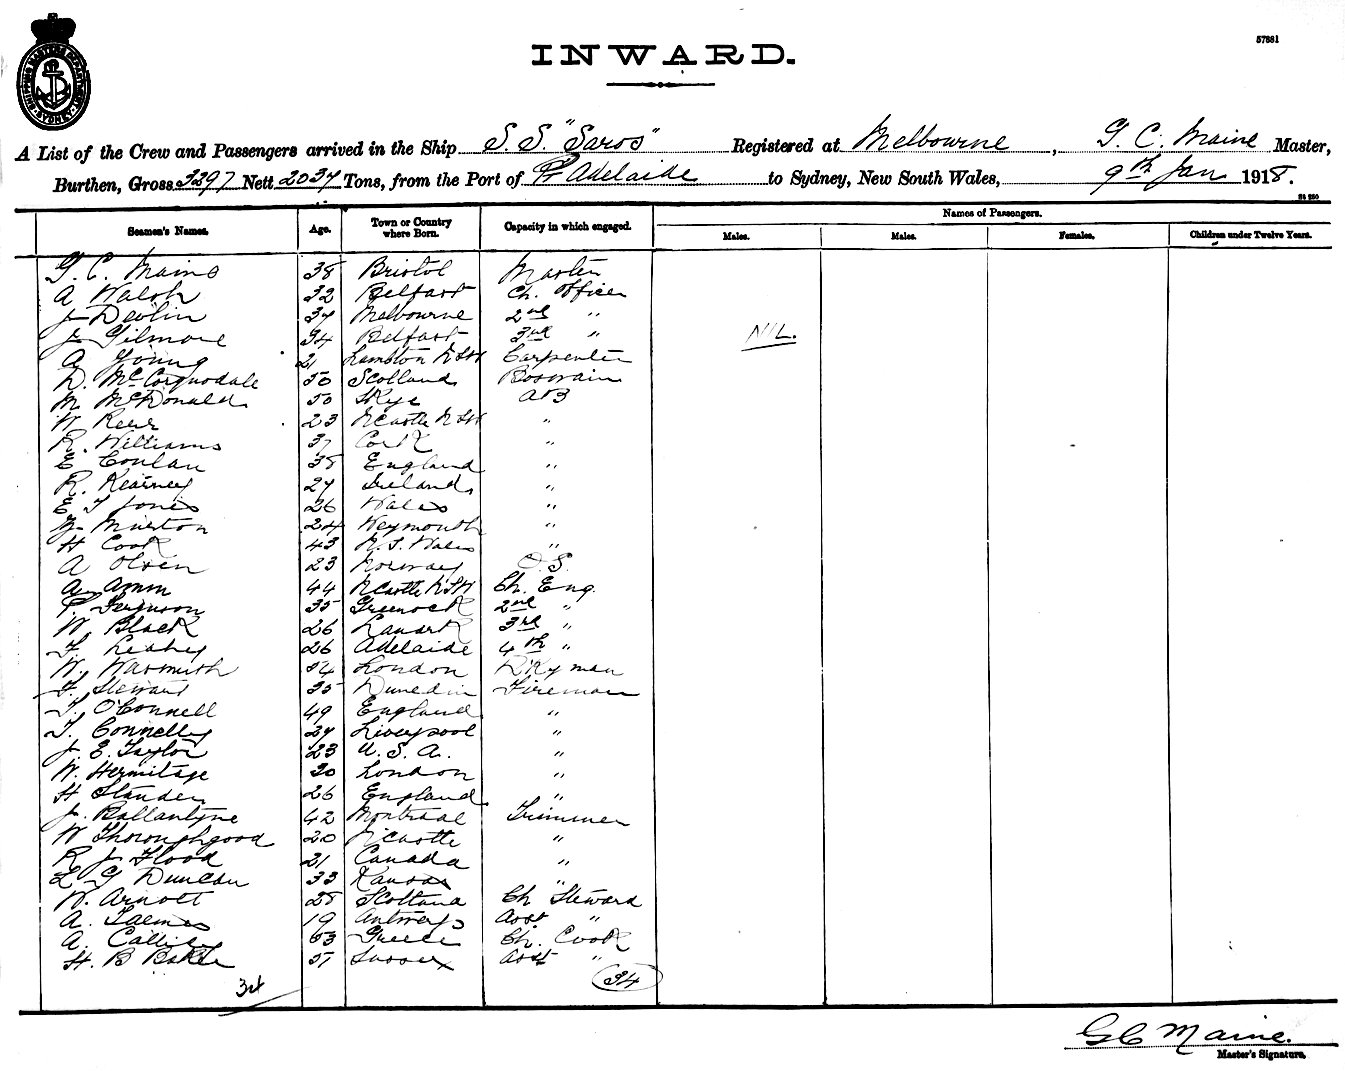 57881
SHIPPING MASTERS DEPARTMENT SYDNEY
INWARD.
A List of the Crew and Passengers arrived in the Ship S. S. "Saros" Registered at Melbourne, G. C. Maine Master,
Burthen, Gross 3297 Nett 2034 Tons, from the Port of Pt Adelaide to Sydney, New South Wales, 9th Jan 1918.
Seamen's Names. Age. Town or Country where Born. Capacity in which engaged. Names of Passengers.
Males. Males. Females. Children under Twelve Years.
G. C. Maine 38 Bristol Master
A Walsh 32 Belfast Ch. Officer
J Devlin 34 Melbourne 2nd "
J Gilmore 34 Belfast 3rd "
NIL.
A Young 21 Lambton NSW Carpenter
D. McCorquodale 50 Scotland Boswain
M McDonald 50 Skye AB
W 23 NCastle NSW "
R. Williams 37 Cork "
E Conlan 38 England "
R. Kearney 27 Ireland "
E T Jones 26 Wales "
Murton 24 Weymouth "
H Cook 43 N. S. Wales "
A Olsen 23 Norway O.S.
A Amm 44 NCastle NSW Ch. Eng.
P. Ferguson 35 Greenock 2nd "
W. Black 26 Lanark 3rd "
Leahy 26 Adelaide 4th "
W. Warmuth London D'Kyman
Stewart 35 Dunedin Fireman
T. O'Connell 49 England "
T. Connelly 27 Liverpool "
J. E. Taylor 23 U. S. A. "
W. Hermitage 30 London "
H Standen 26 England "
J. Ballantyne 42 Montreal Trimmer
W Thoroughgood 20 NCastle "
R J Flood 21 Canada "
L G Duncan 33 Kansas "
W. Arnott 28 Scotland Ch Steward
A. 19 Antwerp Asst "
A. 53 Greece Ch. Cook
H. B Baker 37 Sussex Asst "
34 34
G C Maine.
Master's Signature.